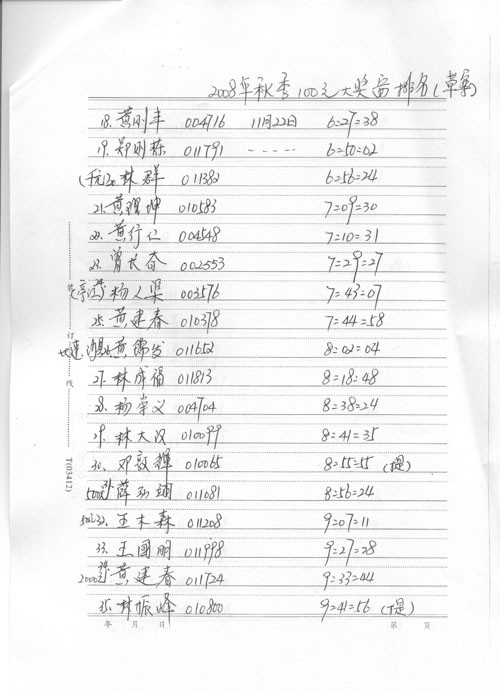 2008年秋季100元大奖 排名(草案)
18. 黄刚丰 004716 11月22日 6=27=38
19. 郑刚栋 011791 ----- 6=50=02
林群 011382 6=56=24
21. 黄 坤 010583 7=09=30
22. 黄行仁 004548 7=10=31
23. 曾长奋 002553 7=29=27
杨人渠 003576 7=43=07
25. 黄建春 010378 7=44=58
黄 发 011652 8=02=04
27. 林成福 011813 8=18=48
28. 杨荣义 004704 8=38=24
29. 林大汉 010099 8=41=35
30. 邓敦辉 010065 8=55=55 (提)
薛 011081 8=56=24
32. 王木森 011208 9=07=11
33. 王國明 011998 9=27=28
黄建春 011724 9=33=44
35. 林振峰 010800 9=41=56 (提)
年 月 日 第 页
订
线
T(03412)